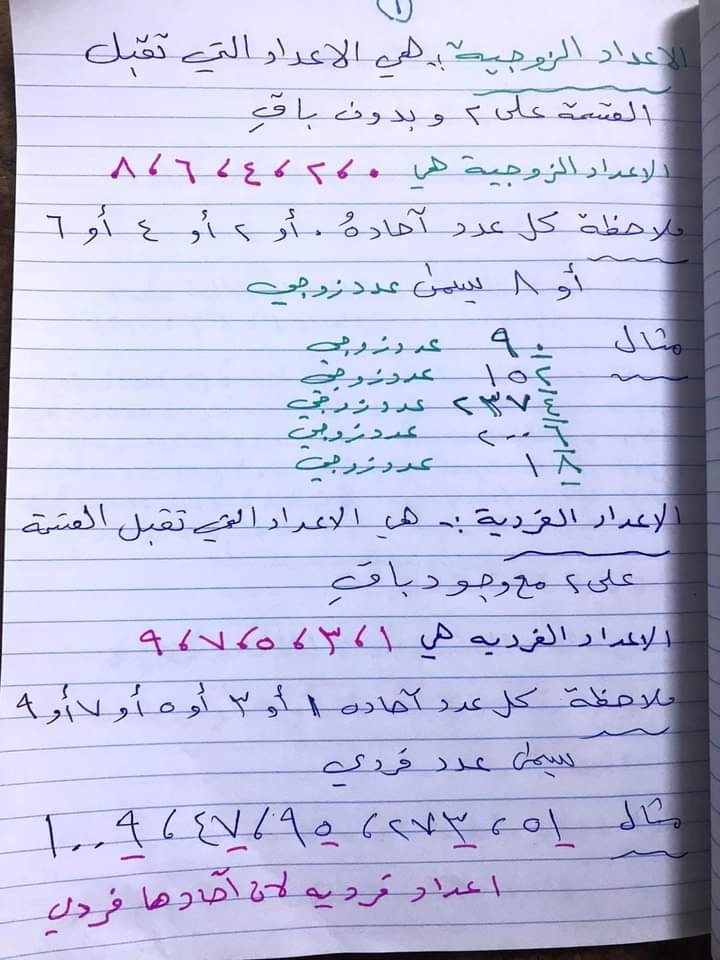 ١
الاعداد الزوجية :- هي الاعداد التي تقبل
القسمة على ٢ و بدون باقٍ
الاعداد الزوجية هي ٠ ، ٢ ، ٤ ، ٦ ، ٨
ملاحظة كل عدد آحادهُ ٠ أو ٢ أو ٤ أو ٦
أو ٨ يسمى عدد زوجي
مثال ٩٠ عدد زوجي
١٥٢ عدد زوجي
٢٣٧٤ عدد زوجي
٢٠٠٦ عدد زوجي
١٨ عدد زوجي
الاعداد الفردية :- هي الاعداد التي تقبل القسمة
على ٢ مع وجود باقٍ
الاعداد الفرديه هي ١ ، ٣ ، ٥ ، ٧ ، ٩
ملاحظة كل عدد آحاده ١ أو ٣ أو ٥ أو ٧ أو ٩
يسمى عدد فردي
مثال ٥١ ، ٢٧٣ ، ٩٥ ، ٤٧ ، ١٠٠٩
اعداد فرديه لان آحادها فردي